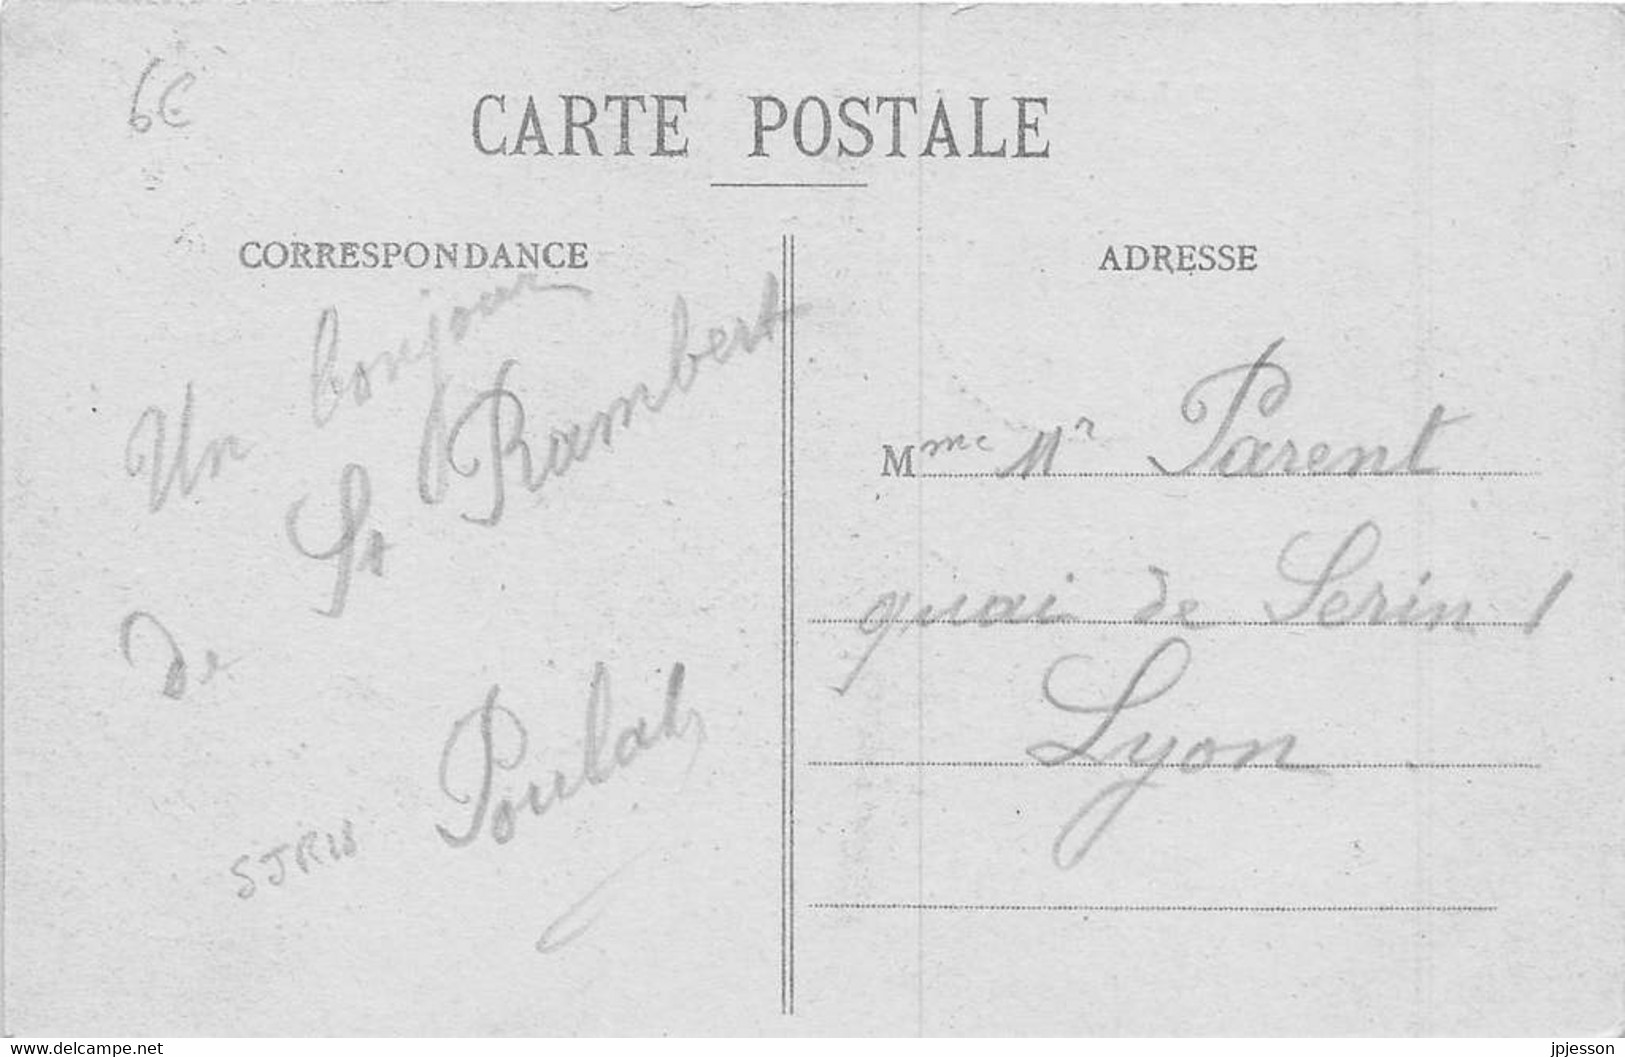 6€
CARTE POSTALE
CORRESPONDANCE
Un bonjour
de St Rambert
Poulat
ADRESSE
Mme Mr Parent
quai de Serin 1
Lyon
www.delcampe.net
jpjesson